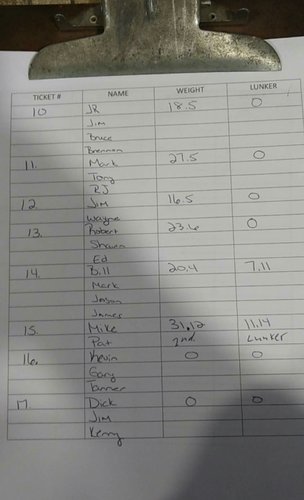 TICKET # NAME WEIGHT LUNKER
10 JR 18.5 0
Jim
Bruce
Brennan
11. Mark 27.5 0
Tony
RJ
12. Jim 16.5 0
Wayne
13. Robert 23.6 0
Shawn
Ed
14. Bill 20.4 7.11
Mark
Jason
James
15. Mike 31.12 11.14
Pat 2nd Lunker
16. Kevin 0 0
Gary
Tanner
17. Dick 0 0
Jim
Kenny